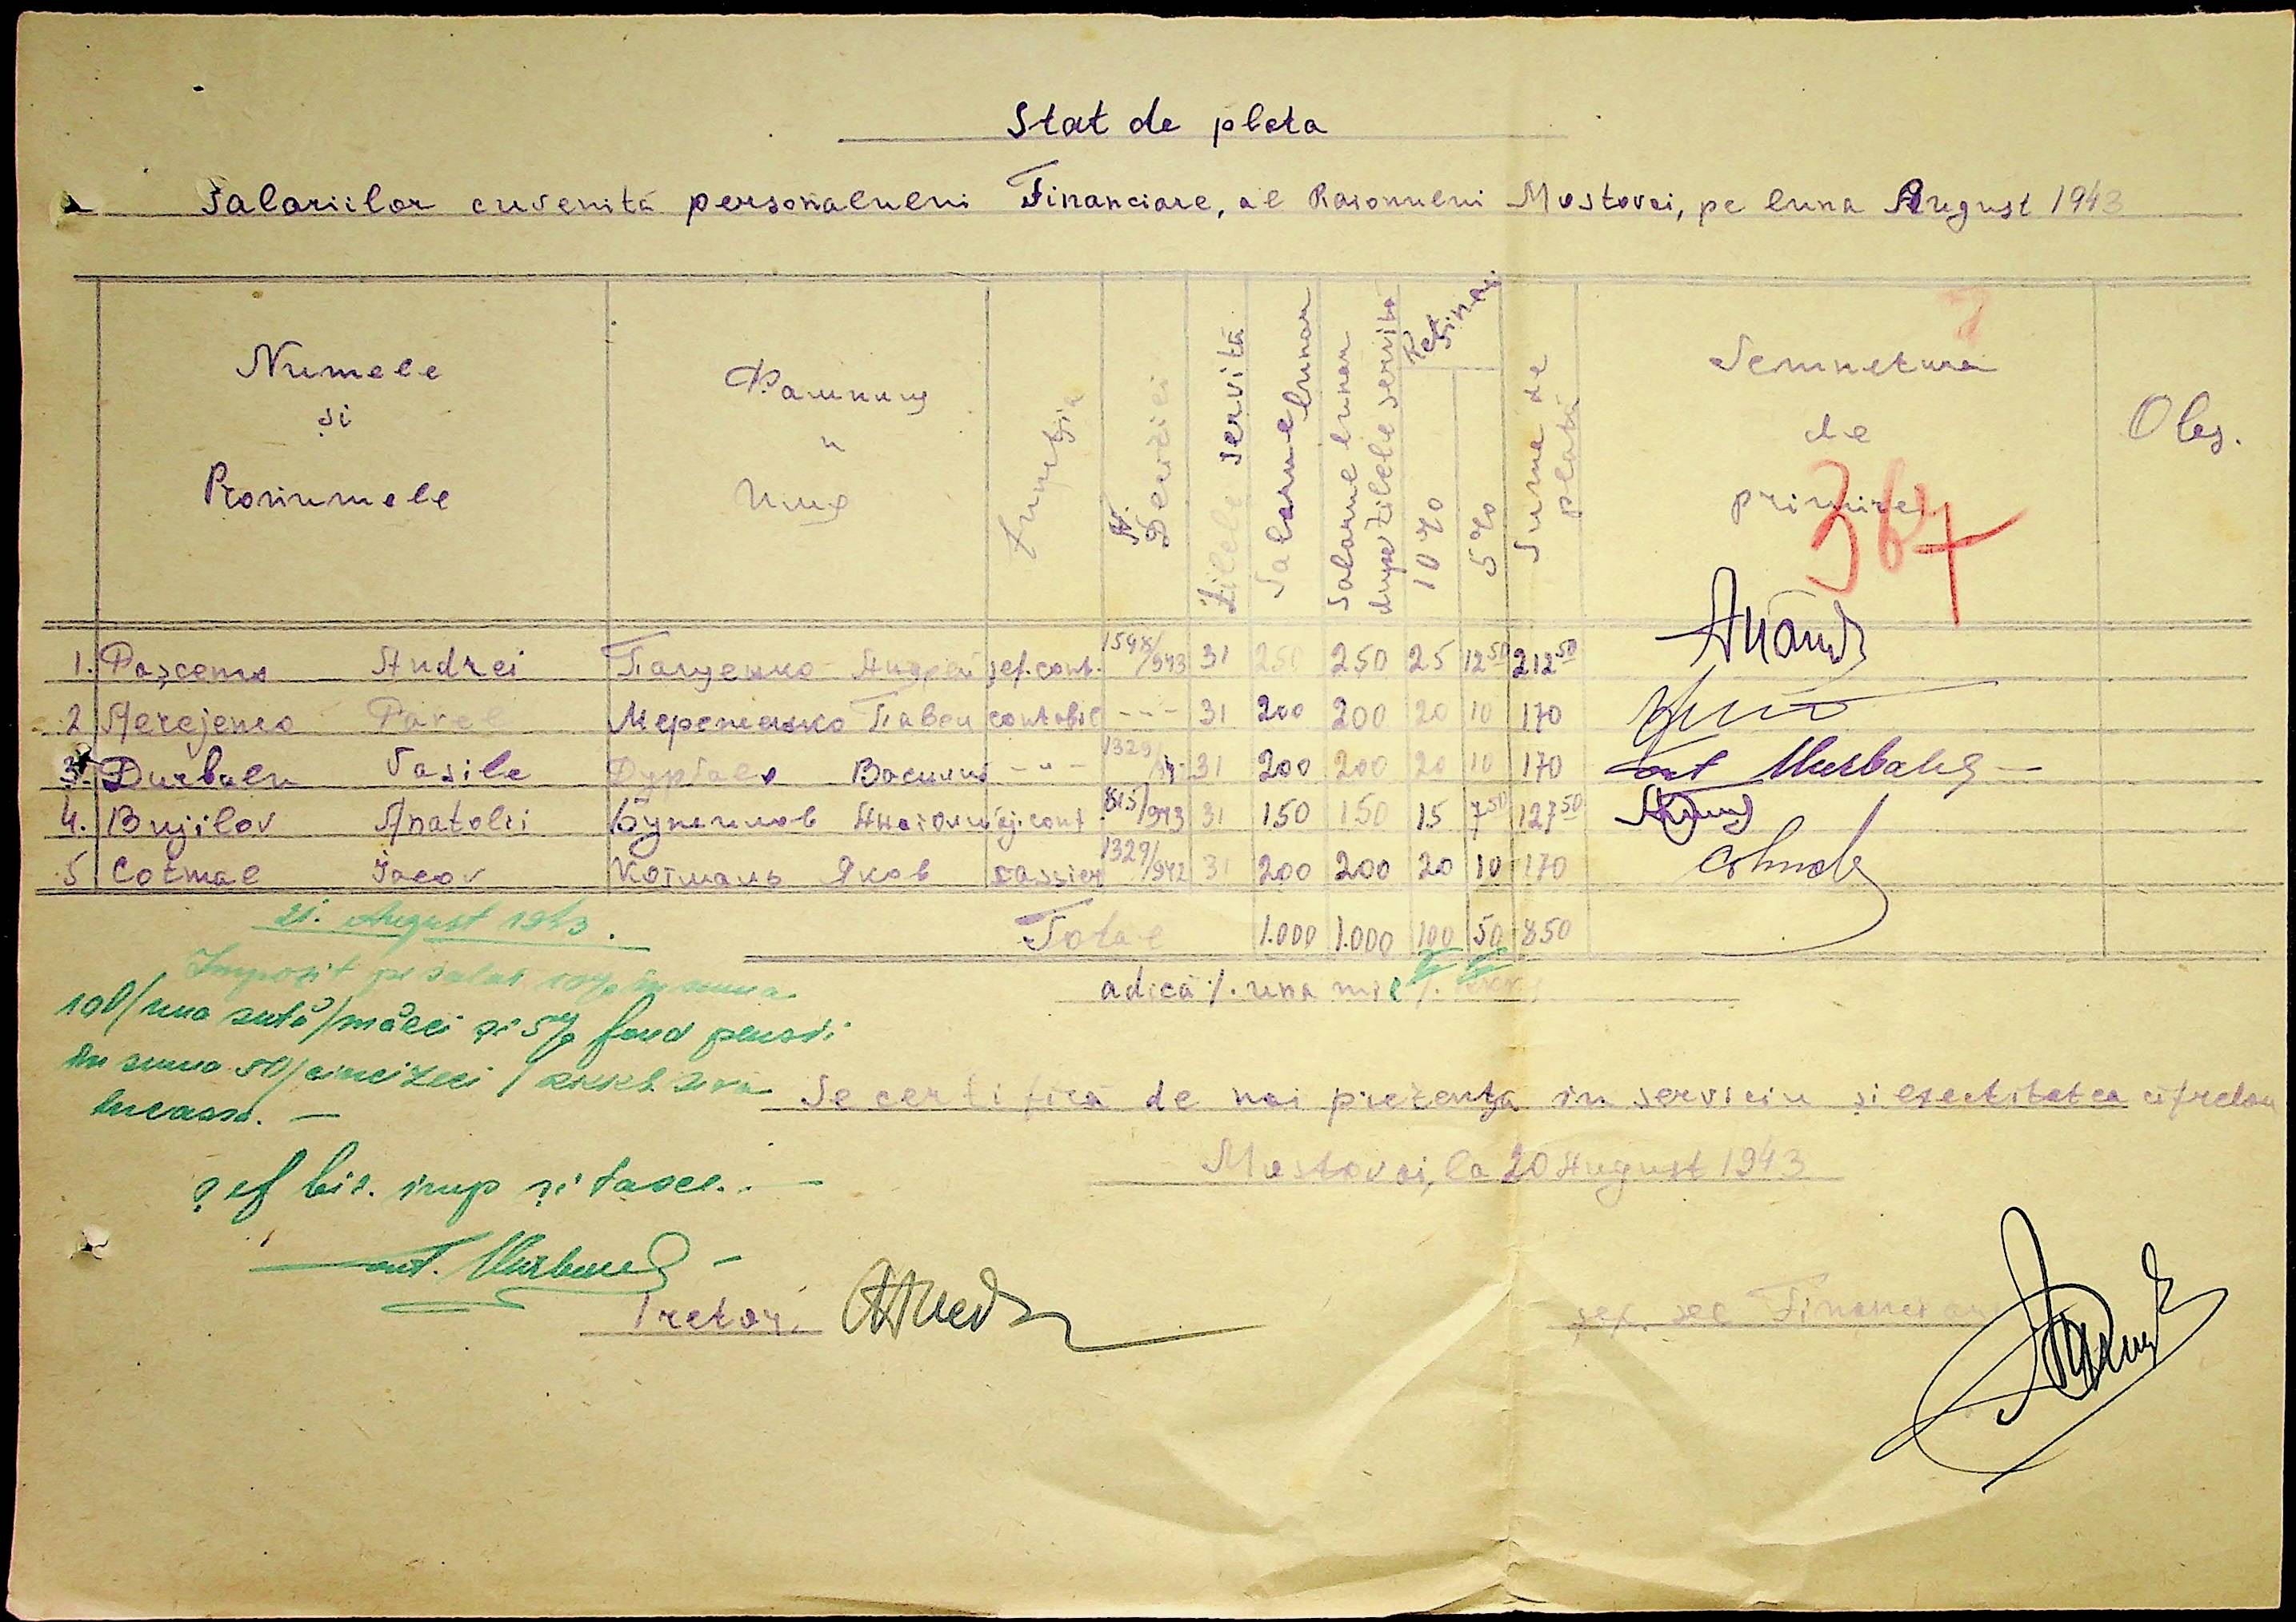 Stat de plata
Salariilor cuvenită personalului Financiare, al Raionului Mostovoi, pe luna August 1943
Numele și Pronumele
Фамилия и Имя
Funcția
N. Deciziei
Zilele servită
Salarul lunar
Salarul lunar dupe zilele servita
Retineri
10%
5%
Suma de plată
Semnetura de primire
Obs.
367
1. Pașcenco Andrei Пащенко Андрей șef. cont. /943 31 250 250 25 12 50 212 50
2 Merejenco Pavel Мереженко Павел contabil - - - 31 200 200 20 10 170
3. Durbalu Vasile Дурбало Василий - " - 1329/ 31 200 200 20 10 170
4. Bujilov Anatolii Бужилов Анатолий aj. cont 815/943 31 150 150 15 7 50 127 50
5 Cotmal Iacov Котмаль Яков cassier 1329/942 31 200 200 20 10 170
Total 1.000 1.000 100 50 850
adică /. una mie /.
21. August 1943.
Impozit pe salar 10% în suma
100/una sută/mărci și 5% fond pensii
în suma 50/cincizeci/
încassa. —
Se certifică de noi prezența in serviciu și exectitatea cifrelor
Mostovoi, la 20 August 1943
șef bir. imp și taxe. —
Pretor,
șef. sec Financiar